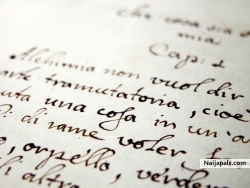 che cosa sia
mia.
Cap: 1
Alchimia non vuol dir
arte tramutatoria, cioe
uta una cosa in un a
di rame voler
, orpello, verde
di altro
Naijapals.com